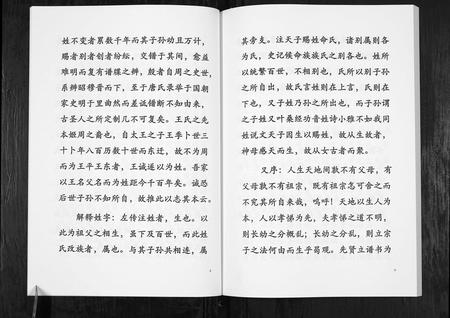 姓不变者累数千年而其子孙动且万计，
赐者别者创者纷纭，交错于其间，愈益
难明而复有谱牒之辨，殷者自周之史世，
系辨昭穆晋而下，至于唐氏录举于国朝
家史明于里曲然而差试错断不知由来，
古圣人之所定制几不可复矣。王氏之先
本姬周之裔也，自太王之子王季卜世三
十卜年八百历数十世而东迁，故不为周
而为王平王东者，王诚遂以为姓。吾家
以王名父名而为姓距今千百年矣。诚恐
后世子孙不知所自，故推此以志其本云。
解释姓字：左传注姓者，生也。以
此为祖父之相生，虽下及百世，而此姓
氏改族者，属也。与其子孙共相连，属
其旁支。注天子赐姓命氏，诸别属则各
为氏，史记候命族族氏之别各也。姓所
以统繁百世，不相别也，氏所以别子孙
之所自出，故氏言姓则在上言，氏则在
下也，又子姓乃孙之所出也，而子孙谓
之子姓又叶桑经幼音姓诗小雅不如我同
姓说文天子因生以赐姓，故从生故者，
神母感天而生，故从女古者而聚。
又序：人生天地间孰不有父母，有
父母孰不有祖宗，既有祖宗忽可舍之而
不究其所自来哉，呜呼！天地以生人为
本，人以孝悌为先，夫孝悌之道不明，
则长幼之分概乱；长幼之分乱，则立宗
子之法何由而生乎荀观。先贤立谱书为